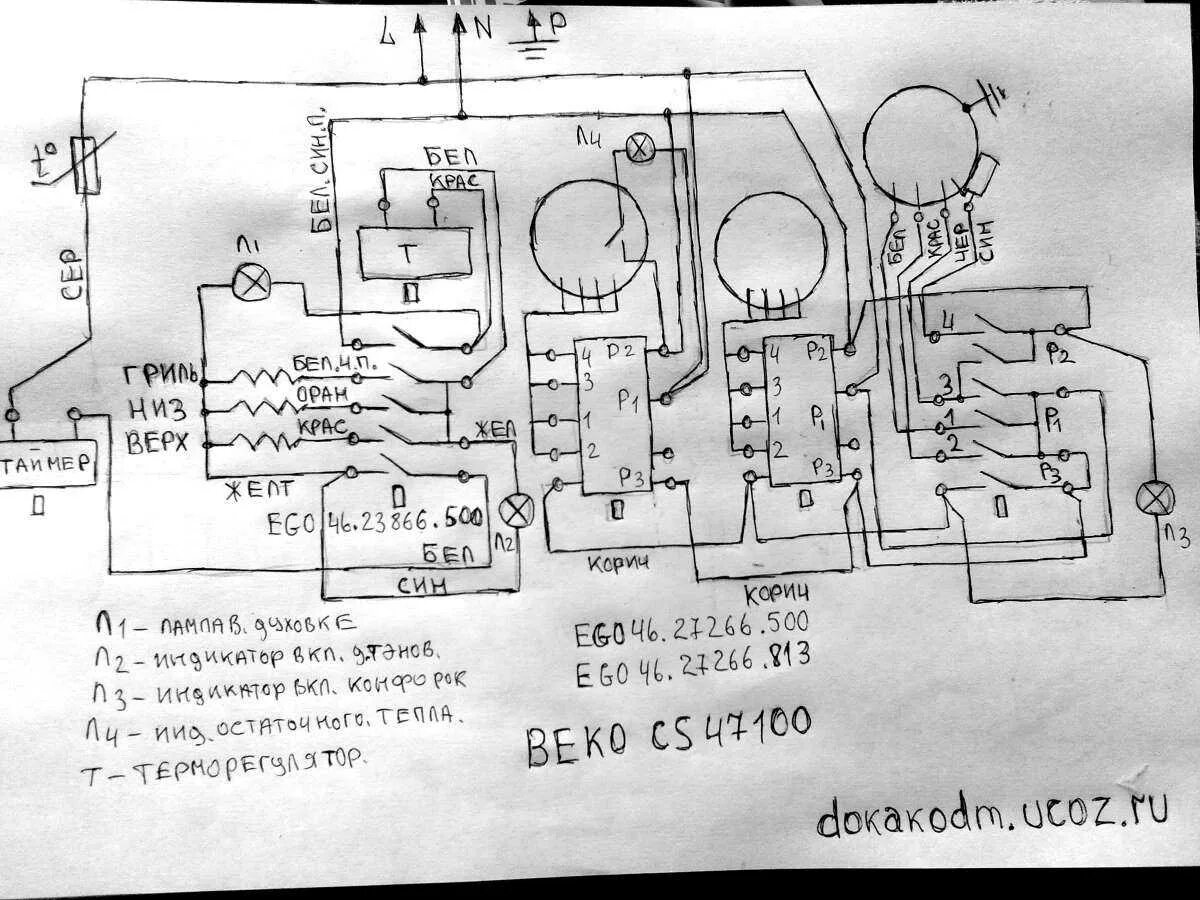 L N P
Л4
t°
СЕР
БЕЛ.СИН.П.
БЕЛ
КРАС
Т
Л1
БЕЛ
КРАС
ЧЕР
СИН
ГРИЛЬ
НИЗ
ВЕРХ
БЕЛ.Ч.П.
ОРАН
КРАС
ЖЕЛ
ЖЕЛТ
ТАЙМЕР
EGO 46.23866.500
Л2
БЕЛ
СИН
4 P2
3
P1
1
2
P3
4 P2
3
1 P1
2
P3
4
P2
3
1 P1
2
P3
Л3
КОРИЧ
КОРИЧ
Л1 – ЛАМПА В. ДУХОВКЕ
Л2 – ИНДИКАТОР ВКЛ. Д.ТЭНОВ.
Л3 – ИНДИКАТОР ВКЛ. КОНФОРОК
Л4 – ИНД. ОСТАТОЧНОГО. ТЕПЛА.
Т – ТЕРМОРЕГУЛЯТОР.
EGO 46.27266.500
EGO 46.27266.813
BEKO CS 47100
dokakodm.ucoz.ru